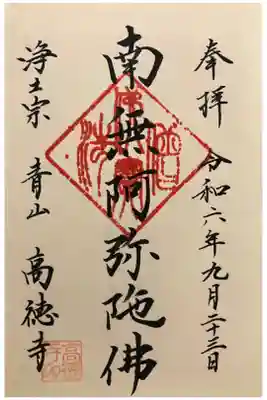 奉拝 令和六年九月二十三日
南無阿弥陀佛
浄土宗 青山 高徳寺